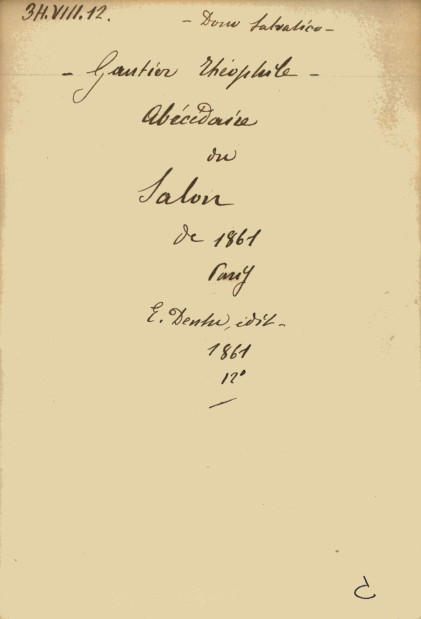 34.VIII.12.
- Dono Salvatico -
- Gautier Théophile -
Abécédaire
du
Salon
de 1861
Paris
E. Dentu, edit -
1861
12°